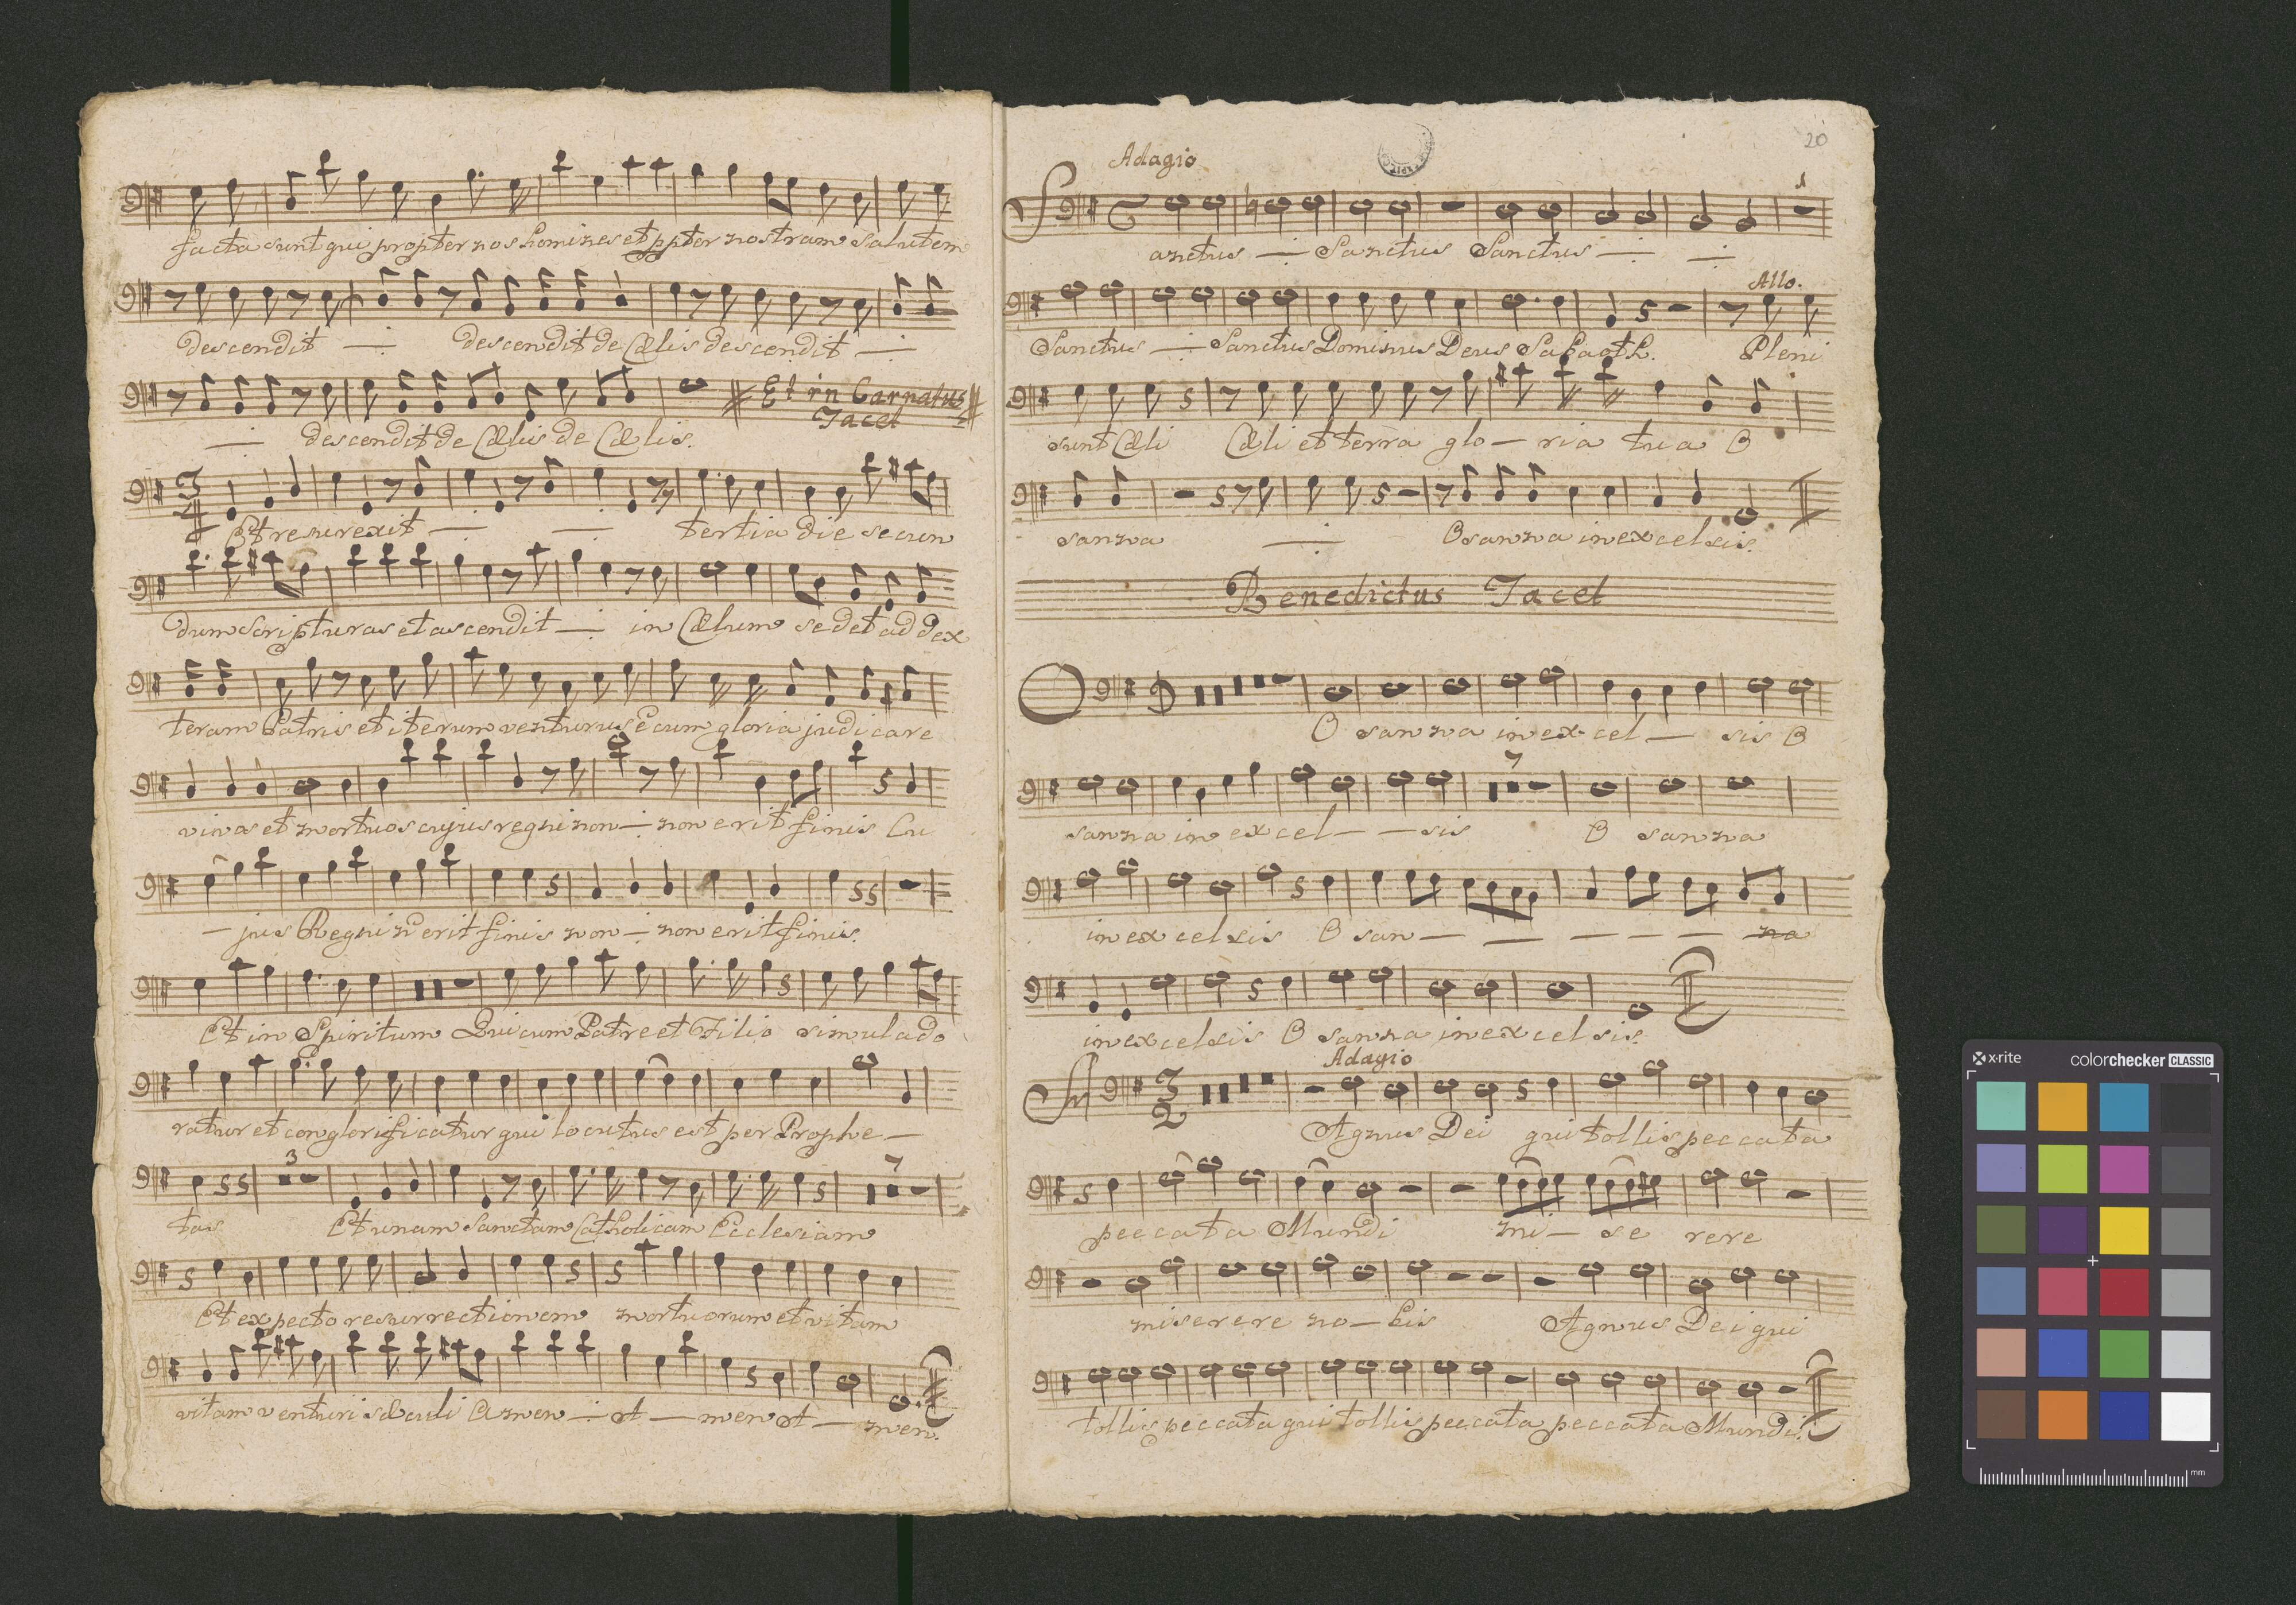 facta sunt qui propter nos homines et ppter nostram salutem
descendit descendit de Cælis descendit
Et in Carnatus
Tacet
descendit de Cælis de Cælis.
Et resurexit tertia die secun
dum Scripturas et ascendit in Cælum sedet ad dex
teram Patris et iterum venturus ē cum gloria judicare
vivos et mortuos cujus regni non non erit finis Cu
jus Regni n erit finis non non erit finis.
Et in Spiritum Qui cum Patre et Filio simul ado
ratur et conglorificatur qui locutus est per Prophe
3 7
tas Et unam Sanctam Catholicam Ecclesiam
Et expecto resurrectionem mortuorum et vitam
vitam venturi sæculi Amen A men A men.
20
Adagio
S anctus Sanctus Sanctus
Allo.
Sanctus Sanctus Dominus Deus Sabaoth. Pleni
sunt Cæli Cæli et terra glo ria tua O
sanna Osanna in excelsis.
Benedictus Tacet
O sanna in ex cel sis O
7
sanna in excel sis O sanna
in excelsis O san na
in excelsis O sanna in excelsis.
Adagio
3
2
Agnus Dei qui tollis peccata
peccata Mundi mi se rere
miserere no bis Agnus Dei qui
tollis peccata qui tollis peccata peccata Mundi.
x-rite colorchecker CLASSIC
mm